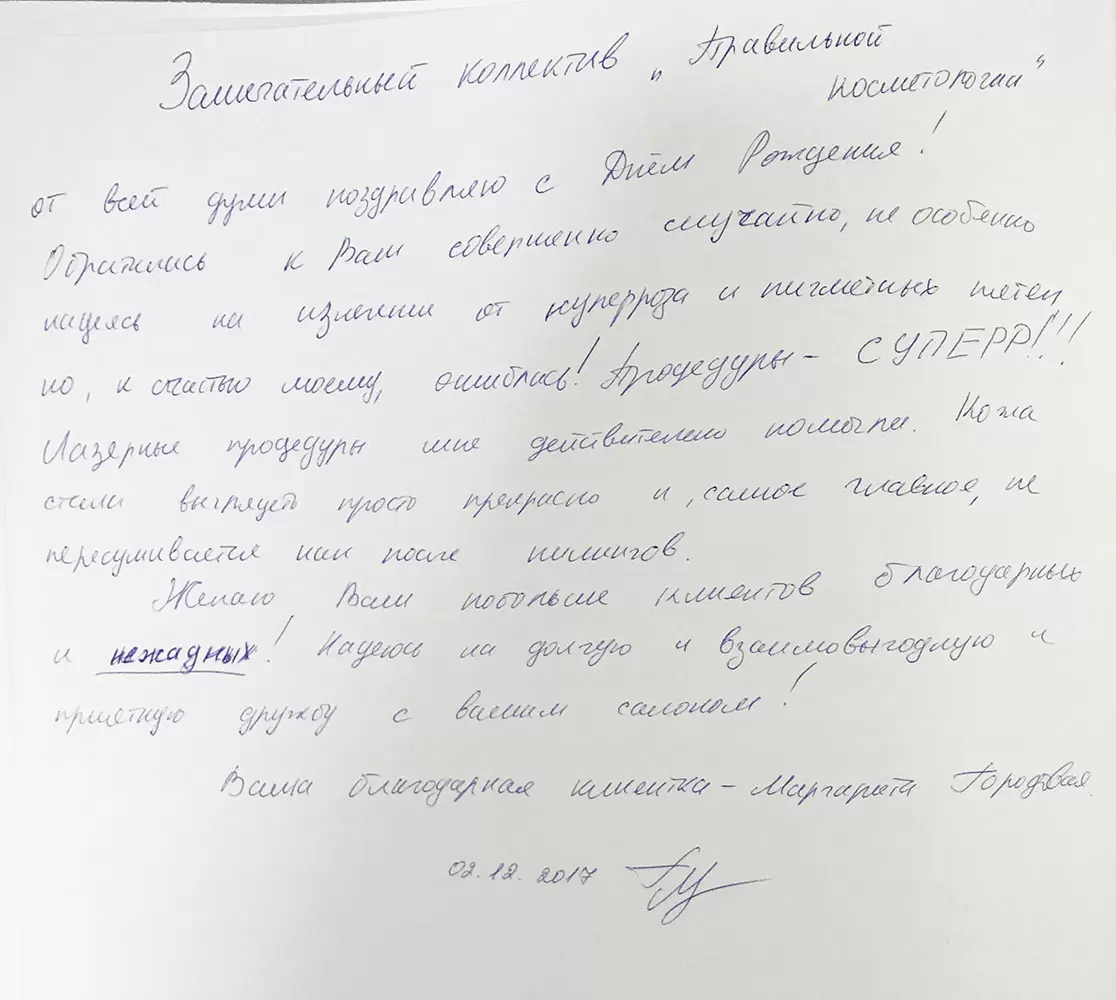 Замечательный коллектив „Правильной
косметологии"
от всей души поздравляю с Днём Рождения!
Обратилась к Вам совершенно случайно, не особенно
надеясь на излечение от купероза и пигметных пятен
но, к счастью моему, ошиблась! Процедуры – СУПЕРР!!!
Лазерные процедуры мне действително помогли. Кожа
стала выглядеть просто прекрасно и, самое главное, не
пересушивается как после пилингов.
Желаю Вам побольше клиентов благодарных
и нежадных! Надеюсь на долгую и взаимовыгодную и
приятную дружбу с вашим салоном!
Ваша благодарная клиентка – Маргарита
02.12.2017